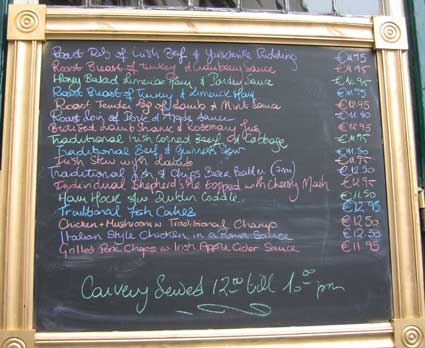 Roast Rib of Irish Beef & Yorkshire Pudding €11.95
Roast Breast of Turkey & Cranberry Sauce €11.95
Honey Baked Limerick Ham & Parsley Sauce €10.95
Roast Breast of Turkey & Limerick Ham
Roast Tender leg of Lamb & Mint Sauce €12.95
Roast Loin of Pork & Apple Sauce €11.50
Braised Lamb Shank & Rosemary Jus €12.95
Traditional Irish Corned Beef & Cabbage €11.95
Traditional Beef & Guinness Stew €11.50
Irish Stew with Lamb
Traditional Fish & Chips Beer Batter €12.50
Individual Shepherd's Pie topped with Cheesy Mash €12.95
Ham Hock Dublin Coddle €11.50
Traditional Fish Cakes €12.95
Chicken + Mushroom w Traditional Champ €12.50
Italian Style Chicken in a Sauce €12.50
Grilled Pork Chops w Irish Apple Cider Sauce €11.95
Carvery Served 12.00 till 10.00 pm